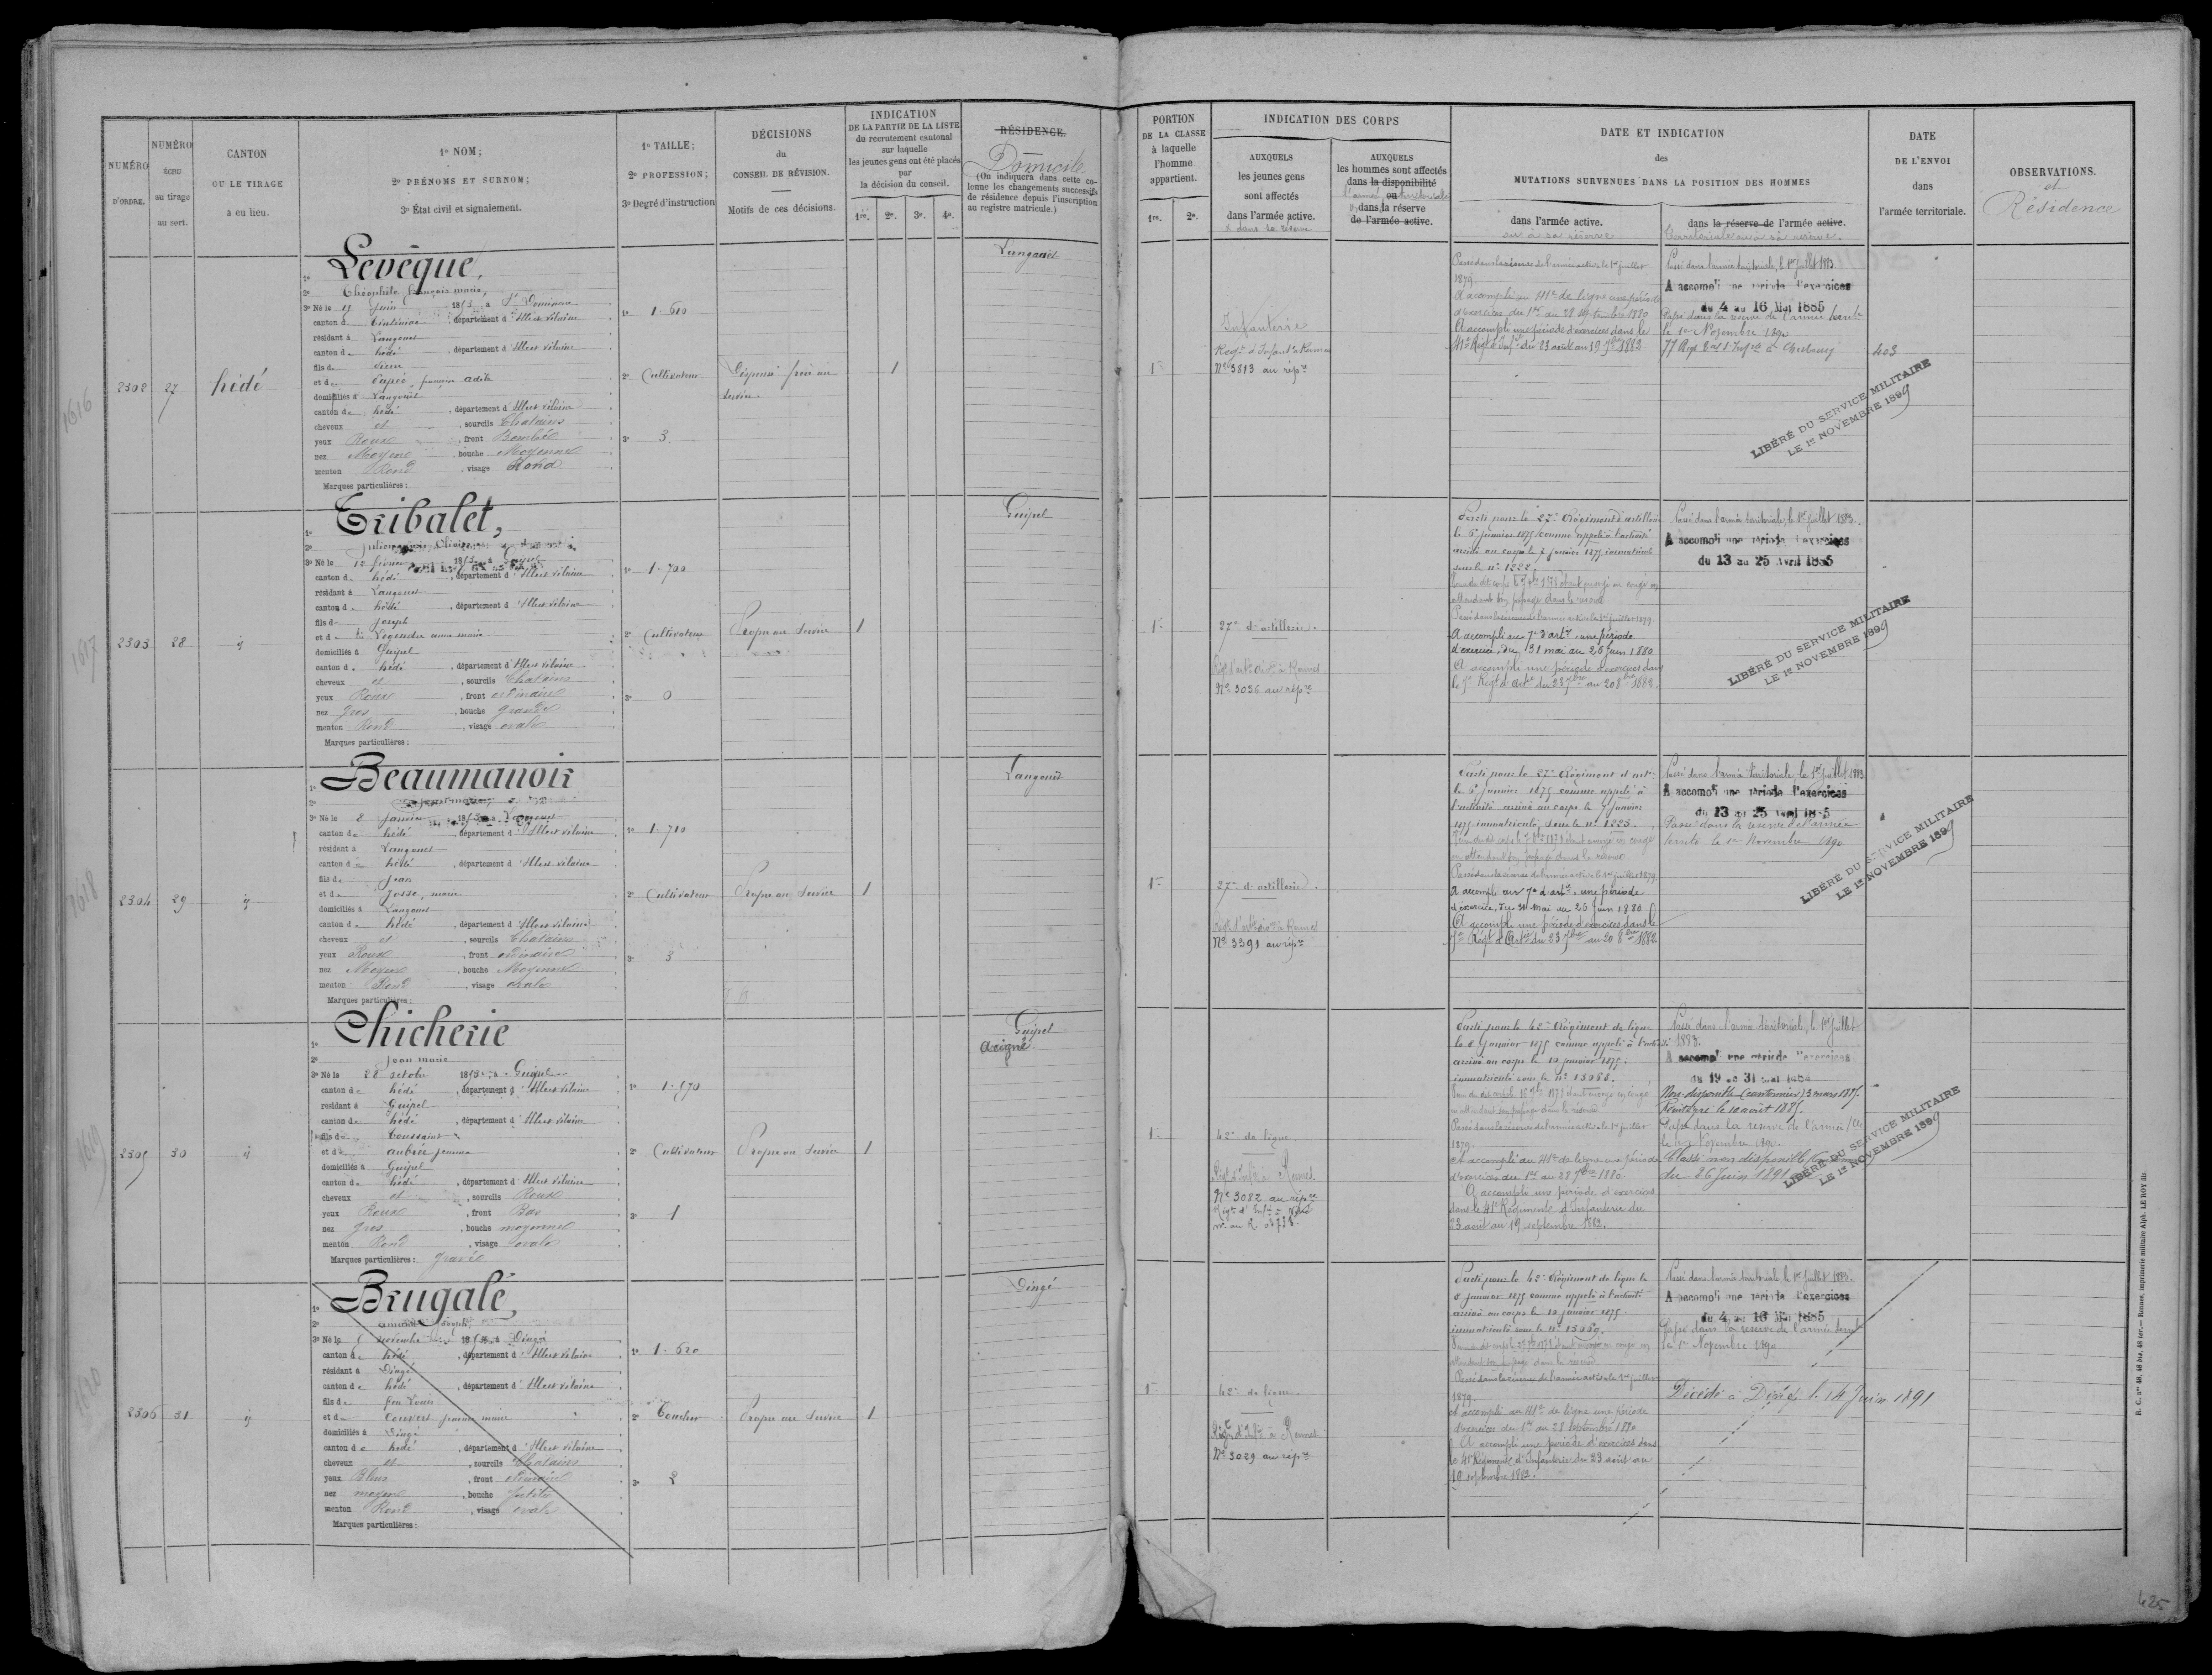 NUMÉRO
D'ORDRE.
NUMÉRO
échu
au tirage
au sort.
CANTON
OU LE TIRAGE
a eu lieu.
1º NOM;
2º PRÉNOMS ET SURNOM;
3º État civil et signalement.
1º TAILLE;
2º PROFESSION;
3º Degré d'instruction
DÉCISIONS
du
CONSEIL DE RÉVISION.
Motifs de ces décisions.
INDICATION
DE LA PARTIE DE LA LISTE
du recrutement cantonal
sur laquelle
les jeunes gens ont été placés
par
la décision du conseil.
1re. 2e. 3e. 4e.
RÉSIDENCE.
Domicile
(On indiquera dans cette co-
lonne les changements successifs
de résidence depuis l'inscription
au registre matricule.)
1616
2302
27
hédé
Levêque,
Théophile françois marie,
3º Né le 19 juin 185 , à St Domineuc
canton de Tinténiac , département d'Ille et Vilaine
résidant à Langouet
canton de hédé , département d'Ille et Vilaine
fils de Pierre
domiciliés à Langouet
canton de hédé , département d'Ille et Vilaine
cheveux et , sourcils Chatains
yeux Roux , front Bombé
nez Moyen , bouche Moyenne
menton Rond , visage Rond
Marques particulières :
1º 1.610
2º Cultivateur
3º 3
Dispensé frère au
service.
1
Langouet
1617
2303
28
ij
Tribalet,
canton de hédé , département d'Ille et Vilaine
résidant à Langouet
canton de hédé , département d'Ille et Vilaine
fils de Joseph
et de Legendre anne marie
domiciliés à Guipel
canton de hédé , département d'Ille et Vilaine
cheveux et , sourcils Chatains
yeux Roux , front ordinaire
nez gros , bouche grande
menton Rond , visage ovale
Marques particulières :
1º 1.700
2º Cultivateur
3º 0
Propre au Service
1
Guipel
1618
2304
29
ij
Beaumanoir
3º Né le 8 Janvier 185 , à Langouet
canton de hédé , département d'Ille et Vilaine
résidant à Langouet
canton de hédé , département d'Ille et Vilaine
fils de Jean
et de Josse, marie
domiciliés à Langouet
canton de hédé , département d'Ille et Vilaine
cheveux et , sourcils Chatains
yeux Roux , front ordinaire
nez Moyen , bouche Moyenne
menton Rond , visage ovale
Marques particulières :
1º 1.710
2º Cultivateur
3º 3
Propre au Service
1
Langouet
1619
2305
30
ij
Chicherie
Jean marie
3º Né le 28 octobre 185 , à Guipel
canton de hédé , département d'Ille et Vilaine
résidant à Guipel
canton de hédé , département d'Ille et Vilaine
fils de Toussaint
et de aubrée jeanne
domiciliés à Guipel
canton de hédé , département d'Ille et Vilaine
cheveux et , sourcils Roux
yeux Roux , front Bas
nez gros , bouche moyenne
menton Rond , visage ovale
Marques particulières : gravé
1º 1.670
2º Cultivateur
3º 1
Propre au Service
1
Guipel
Acigné
1620
2306
31
ij
Brugalé,
3º Né le 6 novembre 185 , à Dingé
canton de hédé , département d'Ille et Vilaine
résidant à Dingé
canton de hédé , département d'Ille et Vilaine
fils de feu Louis
domiciliés à Dingé
canton de hédé , département d'Ille et Vilaine
cheveux et , sourcils Chatains
yeux Bleus , front ordinaire
nez moyen , bouche petite
menton Rond , visage ovale
Marques particulières :
1º 1.620
2º Toucher
3º 2
Propre au Service
1
Dingé
PORTION
DE LA CLASSE
à laquelle
l'homme
appartient.
1re. 2e.
INDICATION DES CORPS
AUXQUELS
les jeunes gens
sont affectés
dans l'armée active.
& dans sa réserve
AUXQUELS
les hommes sont affectés
dans la disponibilité
ou
l'armée territoriale
dans la réserve
de l'armée active.
DATE ET INDICATION
des
MUTATIONS SURVENUES DANS LA POSITION DES HOMMES
dans l'armée active.
ou à sa réserve
dans la réserve de l'armée active.
territoriale ou à sa réserve.
DATE
DE L'ENVOI
dans
l'armée territoriale.
OBSERVATIONS.
et
Résidence
1re
Infanterie
Regt d'Infant. à Rennes
Nº 3813 au répre
Passé dans la réserve de l'armée active le 1er juillet
1879.
A accompli au 41e de ligne une période
d'exercices du 1er au 28 septembre 1880
A accompli une période d'exercices dans le
41e Régt d'Infie du 23 août au 19 7bre 1882
Passé dans l'armée territoriale, le 1er juillet 1883
A accompli une période d'exercices
du 4 au 16 Mai 1885
Passé dans la réserve de l'armée territle
le 1er Novembre 1890
403
LIBÉRÉ DU SERVICE MILITAIRE
LE 1er NOVEMBRE 1899
1re
27e d'artillerie.
Nº 3036 au répre
Parti pour le 27e Régiment d'artillerie
le 6 janvier 1875 comme appelé à l'activité
arrivé au corps le janvier 1875 immatriculé
sous le nº 1222.
en attendant son passage dans la réserve
Passé dans la réserve de l'armée active le 1er juillet 1879
A accompli au 7e d'artie, une période
d'exercice, du 31 mai au 26 juin 1880
A accompli une période d'exercices dans
le 7e Régt d'Artie du 23 7bre au 20 8bre 1882.
Passé dans l'armée territoriale, le 1er juillet 1883.
A accompli une période d'exercices
du 13 au 25 Avril 1885
LIBÉRÉ DU SERVICE MILITAIRE
LE 1er NOVEMBRE 1899
1re
27e d'artillerie.
Nº 3391 au répre
Parti pour le 27e Régiment d'artie
le 6 janvier 1875 comme appelé à
l'activité arrivé au corps le 9 janvier
1875 immatriculé, sous le nº 1223.
en attendant son passage dans la réserve
Passé dans la réserve de l'armée active le 1er juillet 1879
A accompli au 7e d'artie, une période
d'exercice, du 31 mai au 26 juin 1880
A accompli une période d'exercices dans le
7e Régt d'Artie du 23 7bre au 20 8bre 1882
Passé dans l'armée territoriale, le 1er juillet 1883
A accompli une période d'exercices
du 13 au 25 Avril 1885
Passé dans la réserve de l'armée
territle le 1er Novembre 1890
LIBÉRÉ DU SERVICE MILITAIRE
LE 1er NOVEMBRE 1899
1re
42e de ligne.
Régt d'Infie à Rennes.
Nº 3082 au répre
Parti pour le 42e Régiment de ligne
le 8 Janvier 1875 comme appelé à l'activité
arrivé au corps le 10 janvier 1875.
immatriculé sous le nº 13068.
en attendant son passage dans la réserve
Passé dans la réserve de l'armée active le 1er juillet
1879.
A accompli au 41e de ligne une période
d'exercices du 1er au 28 7bre 1880
A accompli une période d'exercices
dans le 41e Régiment d'Infanterie du
23 août au 19 septembre 1882.
Passé dans l'armée territoriale, le 1er juillet
1883.
A accompli une période d'exercices
du 19 au 31 mai 1884
Non-disponible (cantonnier) 3 mars 1885.
Réintégré le 10 août 1885.
Passé dans la réserve de l'armée tle
le 1er Novembre 1890.
Classé non disponible
du 26 Juin 1891
LIBÉRÉ DU SERVICE MILITAIRE
LE 1er NOVEMBRE 1899
1re
42e de ligne.
Régt d'Infie à Rennes
Nº 3029 au répre
Parti pour le 42e Régiment de ligne le
8 janvier 1875 comme appelé à l'activité
arrivé au corps le 10 janvier 1875.
immatriculé sous le nº 13069.
attendant son passage dans la réserve
Passé dans la réserve de l'armée active le 1er juillet
1879.
A accompli au 41e de ligne une période
d'exercices du 1er au 28 septembre 1880
A accompli une période d'exercices dans
le 41e Régiment d'Infanterie du 23 août au
19 septembre 1882.
Passé dans l'armée territoriale, le 1er juillet 1883.
A accompli une période d'exercices
du 4 au 16 Mai 1885
Passé dans la réserve de l'armée territle
le 1er Novembre 1890
Décédé à Dingé le 14 Juin 1891
R. C. nos 46, 46 bis, 46 ter.— Rennes, imprimerie militaire Alph. LE ROY fils.
425